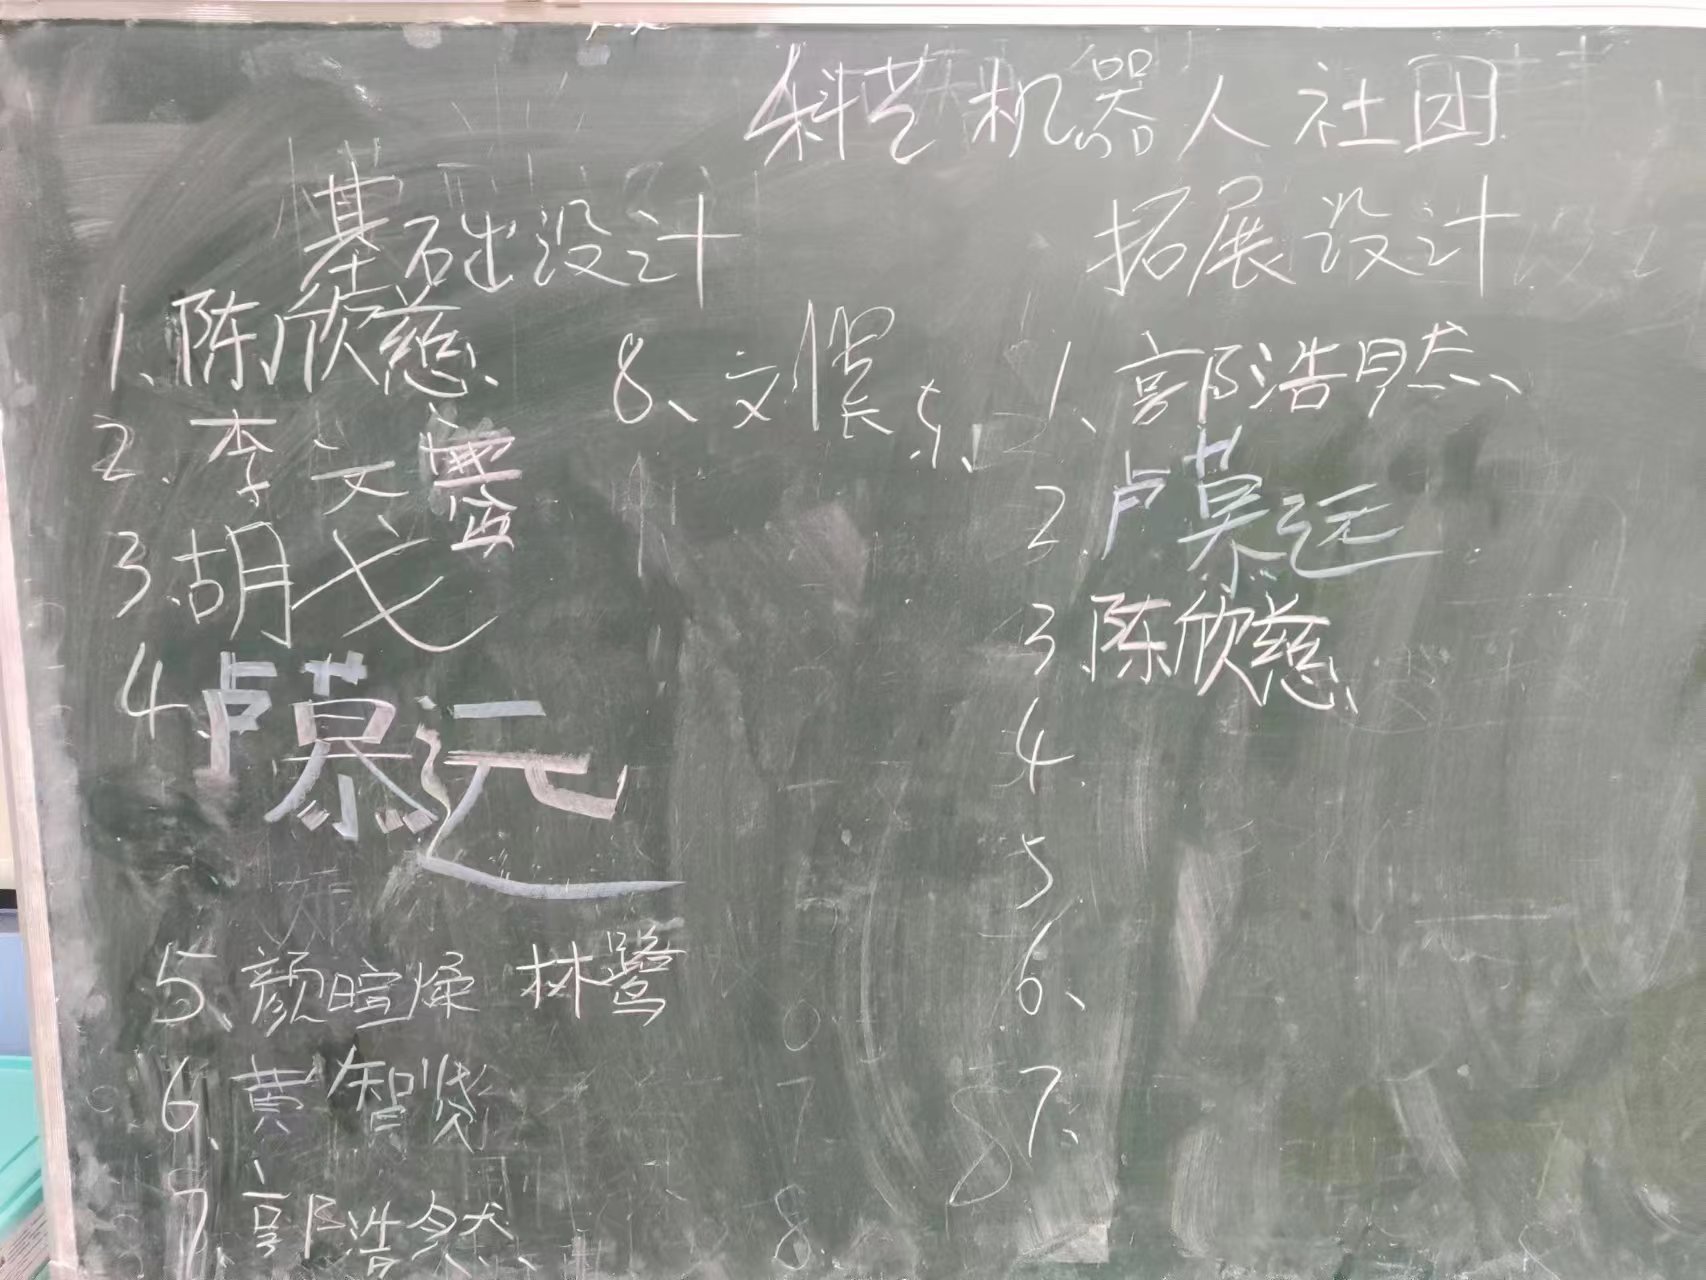 科艺机器人社团
基础设计
1、陈欣慈
2、李文
3、胡戈
4、卢慕远
5、颜暄燥 林鹭
6、黄智贤
7、郭浩然
8、文
8、
拓展设计
1、郭浩然
2、卢慕远
3、陈欣慈
4、
5
6、
7、